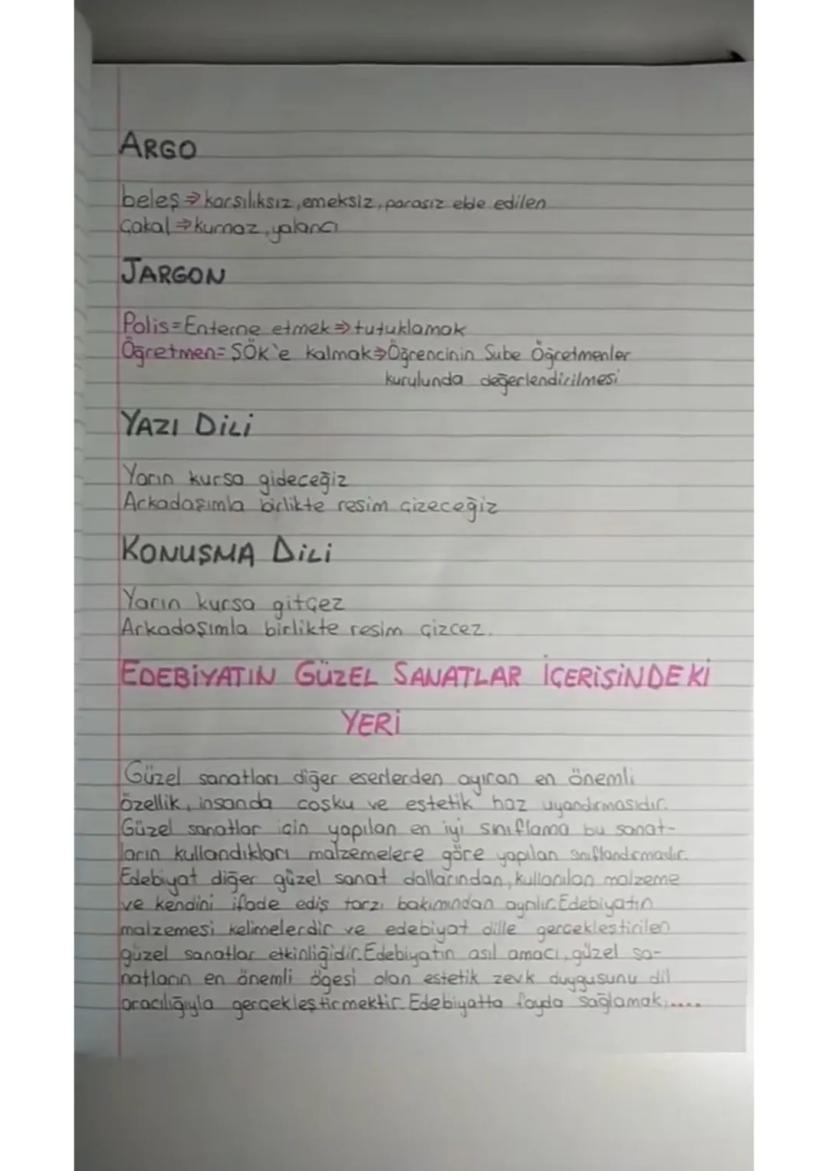 ARGO
beleş ⇒ karşılıksız, emeksiz, parasız elde edilen
Çakal ⇒ kurnaz, yalancı
JARGON
Polis = Enterne etmek ⇒ tutuklamak
Öğretmen = ŞÖK'e kalmak ⇒ Öğrencinin Şube Öğretmenler
kurulunda değerlendirilmesi
YAZI DİLİ
Yarın kursa gideceğiz
Arkadaşımla birlikte resim çizeceğiz
KONUŞMA DİLİ
Yarın kursa gitçez
Arkadaşımla birlikte resim çizcez.
EDEBİYATIN GÜZEL SANATLAR İÇERİSİNDEKİ
YERİ
Güzel sanatları diğer eserlerden ayıran en önemli
özellik, insanda coşku ve estetik haz uyandırmasıdır.
Güzel sanatlar için yapılan en iyi sınıflama bu sanat-
ların kullandıkları malzemelere göre yapılan sınıflandırmadır.
Edebiyat diğer güzel sanat dallarından, kullanılan malzeme
ve kendini ifade ediş tarzı bakımından ayrılır. Edebiyatın
malzemesi kelimelerdir ve edebiyat dille gerçekleştirilen
güzel sanatlar etkinliğidir. Edebiyatın asıl amacı, güzel sa-
natların en önemli ögesi olan estetik zevk duygusunu dil
aracılığıyla gerçekleştirmektir. Edebiyatta fayda sağlamak,....